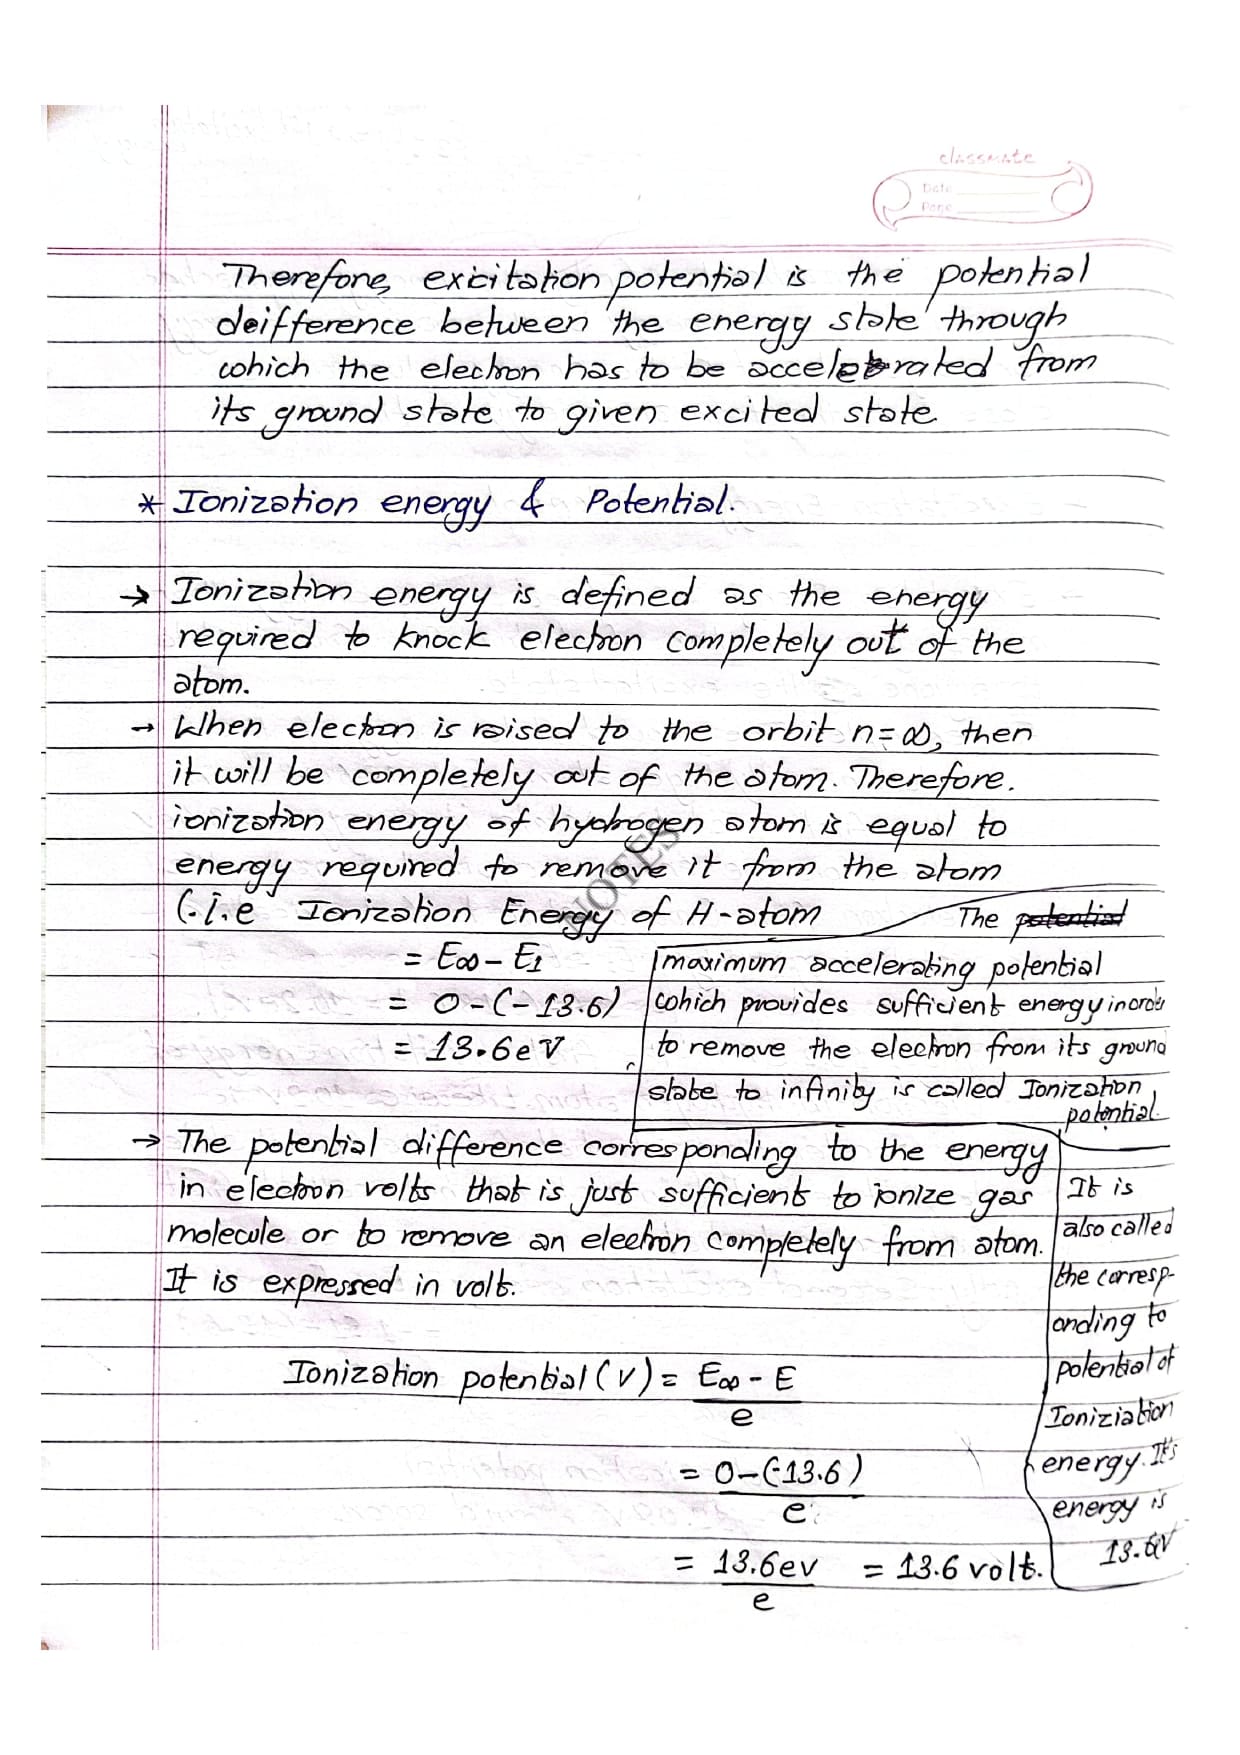 classmate
Date
Page
Therefore, excitation potential is the potential
deifference between the energy state through
which the electron has to be accelebrated from
its ground state to given excited state.
* Ionization energy & Potential.
→ Ionization energy is defined as the energy
required to knock electron completely out of the
atom.
→ When electron is raised to the orbit n=∞, then
it will be completely out of the atom. Therefore.
ionization energy of hydrogen atom is equal to
energy required to remove it from the atom
(.i.e Ionization Energy of H-atom
= E∞ - E1
= 0-(-13.6)
= 13.6eV
NOTES
The potential
maximum accelerating potential
which provides sufficient energy in orde
to remove the electron from its ground
state to infinity is called Ionization
potential.
→ The potential difference corresponding to the energy
in electron volts that is just sufficient to ionize gas
molecule or to remove an electron completely from atom.
It is expressed in volt.
It is
also called
the corresp-
onding to
potential of
Ioniziation
energy. It's
energy is
13.6eV
Ionization potential (V) = E∞ - E
e
= 0-(-13.6)
e
= 13.6ev = 13.6 volt.
e